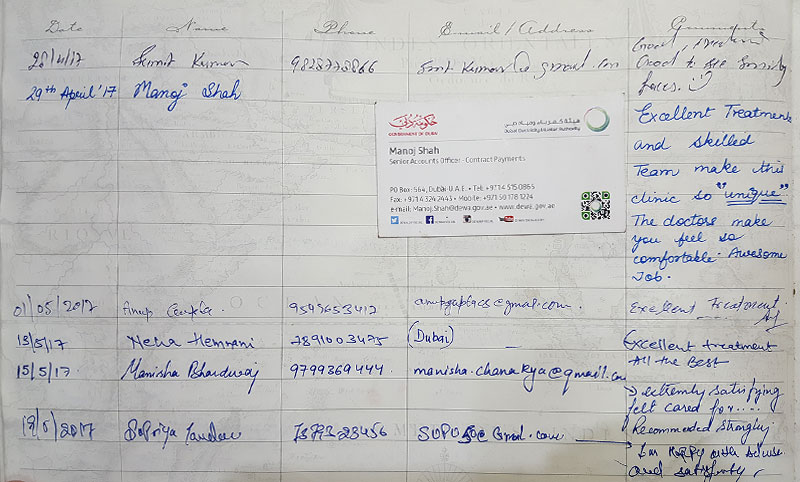 Date Name Phone Email/Address Comments
28/4/17 Sumit Kumar Good
Good to see smiling
faces.
29th April '17 Manoj Shah
حكومة دبي
GOVERNMENT OF DUBAI
هيئة كهرباء ومياه دبي
Dubai Electricity & Water Authority
Manoj Shah
Senior Accounts Officer - Contract Payments
PO Box: 564, Dubai U.A.E. • Tel: +971 4 515 0865
Fax: +971 4 324 2443 • Mobile: +971 50 178 1224
e-mail: Manoj.Shah@dewa.gov.ae • www.dewa.gov.ae
Excellent Treatment
and skilled
Team make this
clinic so "unique"
The doctors make
you feel so
comfortable. Awesome
Job.
01/05/2017 Anup Gupta 9549653412 anupguptacs@gmail.com Excellent Treatment
13/5/17 Neha Hemnani 7891003475 (Dubai) Excellent treatment
All the Best
15/5/17 Manisha Bhardwaj 9799369444 manisha.chanakya@gmail.com
extremely satisfying
felt cared for....
Recommended strongly
/5/2017 Supriya
I'm happy with
and satisfy